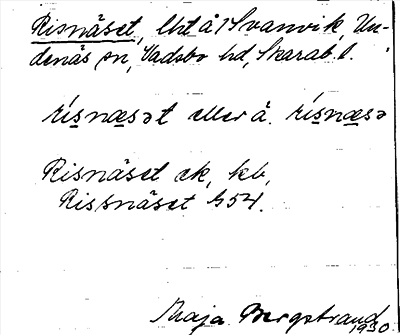 Risnäset, lht å 1 Svanvik, Un-
denäs sn, Vadsbo hd, Skarab. l.
rísnæsət eller å. rísnæsə
Risnäset ek, kb,
Rissnäset G54.
Maja Bergstrand
1930